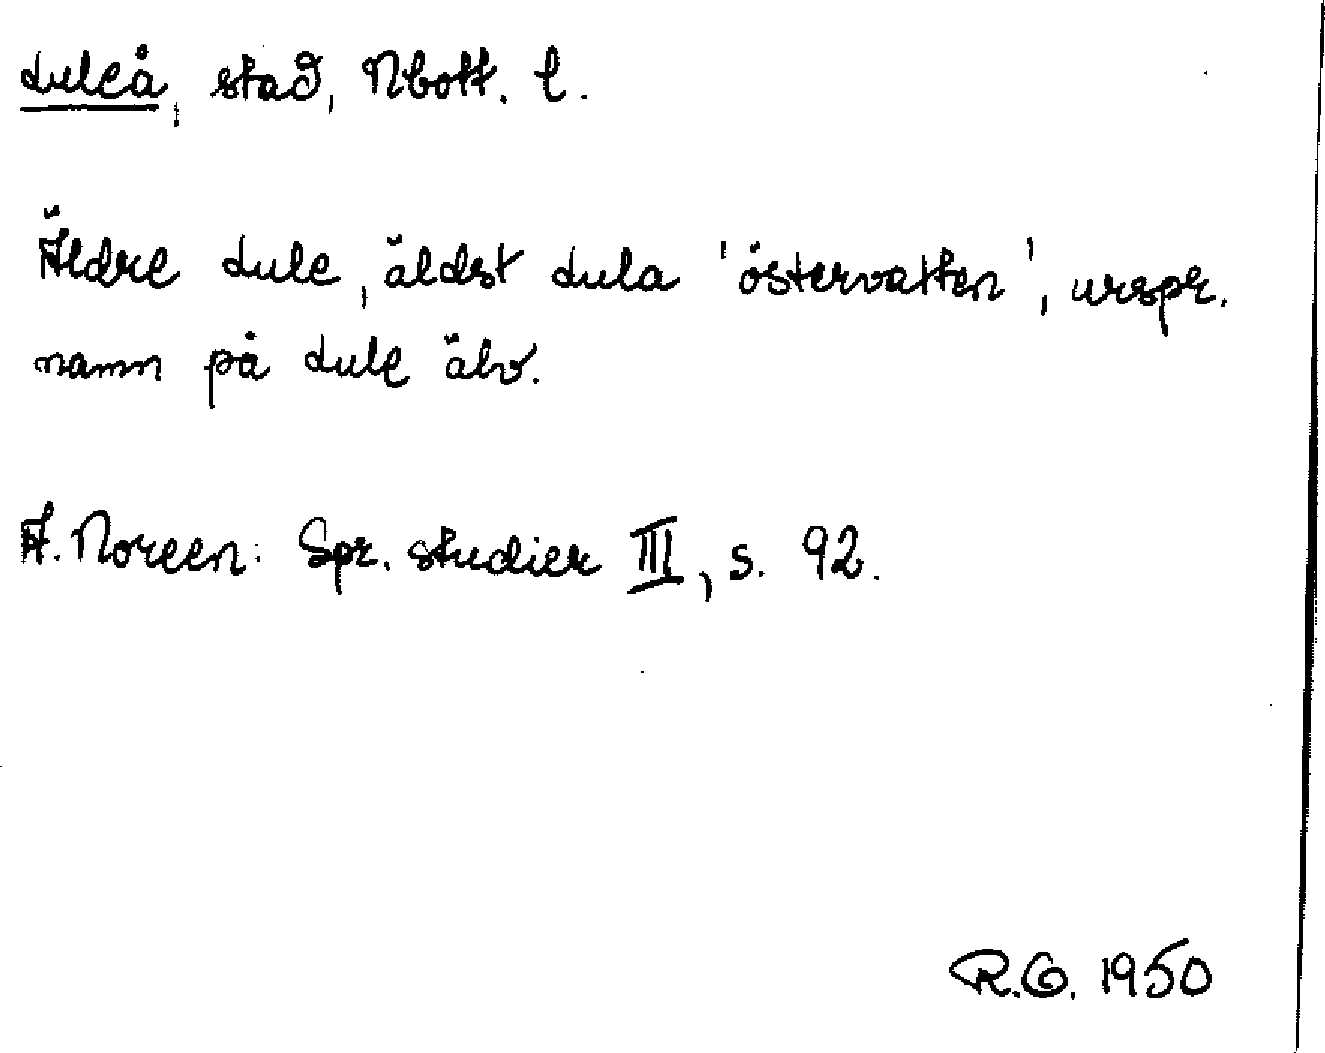 Luleå, stad, Nbott. l.
Äldre Lule, äldst Lula 'östervatten', urspr.
namn på Lule älv.
A. Noreen: Spr. studier III, s. 92.
R.G. 1950